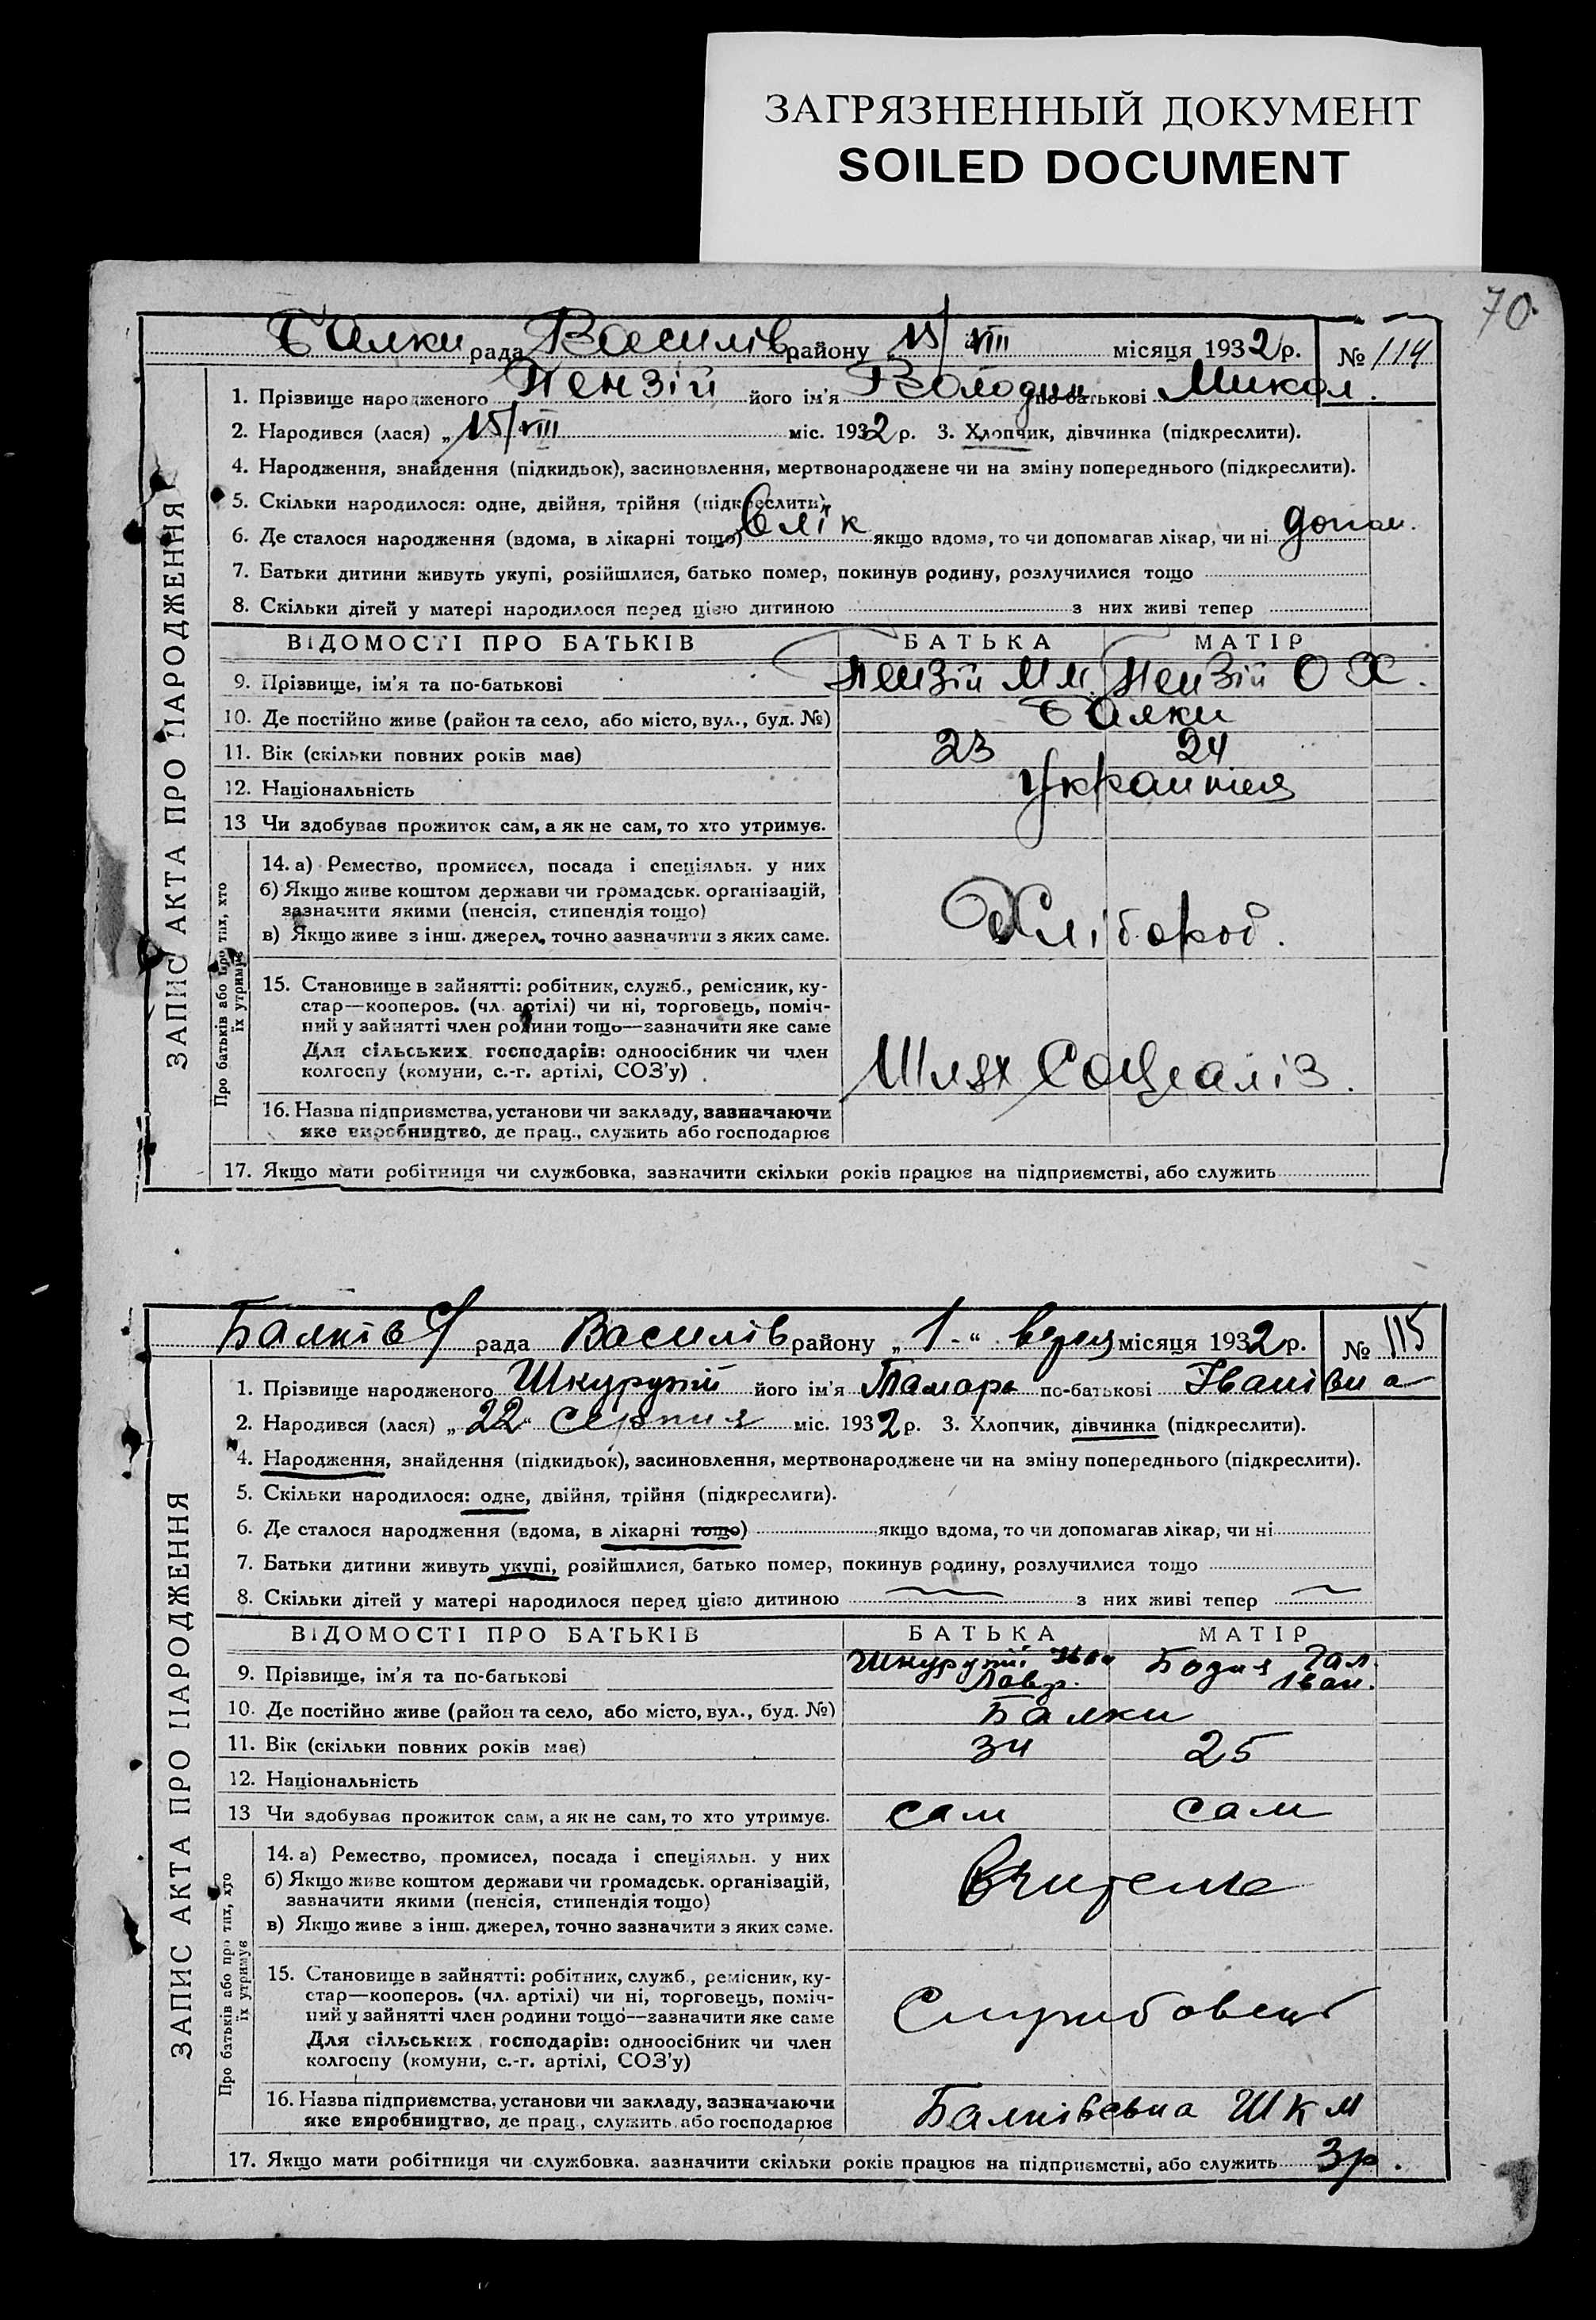 ЗАГРЯЗНЕННЫЙ ДОКУМЕНТ
SOILED DOCUMENT
70.
Балки рада Василів району „ 15/VIII місяця 1932 р. № 114
1. Прізвище народженого Пензій його ім'я Володим по-батькові Микол.
2. Народився (лася) „ 15/VIII міс. 1932 р. 3. Хлопчик, дівчинка (підкреслити).
4. Народження, знайдення (підкидьок), засиновлення, мертвонароджене чи на зміну попереднього (підкреслити).
5. Скільки народилося: одне, двійня, трійня (підкреслити).
6. Де сталося народження (вдома, в лікарні тощо) в лік якщо вдома, то чи допомагав лікар, чи ні допом.
7. Батьки дитини живуть укупі, розійшлися, батько помер, покинув родину, розлучилися тощо
8. Скільки дітей у матері народилося перед цією дитиною з них живі тепер
ВІДОМОСТІ ПРО БАТЬКІВ БАТЬКА МАТІР
9. Прізвище, ім'я та по-батькові Пензій М М. Пензій О Х.
10. Де постійно живе (район та село, або місто, вул., буд. №) Балки
11. Вік (скільки повних років має) 23 24
12. Національність
13 Чи здобував прожиток сам, а як не сам, то хто утримує.
14. а) Ремество, промисел, посада і спеціяльн. у них
б) Якщо живе коштом держави чи громадськ. організацій,
зазначити якими (пенсія, стипендія тощо)
в) Якщо живе з інш. джерел, точно зазначити з яких саме.
Хлібороб.
15. Становище в зайнятті: робітник, служб., ремісник, ку-
стар—кооперов. (чл. артілі) чи ні, торговець, поміч-
ний у зайнятті член родини тощо—зазначити яке саме
Для сільських господарів: одноосібник чи член
колгоспу (комуни, с.-г. артілі, СОЗ'у)
Шлях Соціаліз.
16. Назва підприємства, установи чи закладу, зазначаючи
яке виробництво, де прац., служить або господарює
17. Якщо мати робітниця чи службовка, зазначити скільки років працює на підприємстві, або служить
ЗАПИС АКТА ПРО НАРОДЖЕННЯ
Про батьків або про тих, хто
їх утримує
Балків С/ рада Василів району „ 1 - “ верес місяця 1932 р. № 115
1. Прізвище народженого Шкурупій його ім'я Тамара по-батькові Іванівна
2. Народився (лася) „ 22 “ Серпня міс. 1932 р. 3. Хлопчик, дівчинка (підкреслити).
4. Народження, знайдення (підкидьок), засиновлення, мертвонароджене чи на зміну попереднього (підкреслити).
5. Скільки народилося: одне, двійня, трійня (підкреслити).
6. Де сталося народження (вдома, в лікарні тощо) якщо вдома, то чи допомагав лікар, чи ні
7. Батьки дитини живуть укупі, розійшлися, батько помер, покинув родину, розлучилися тощо
8. Скільки дітей у матері народилося перед цією дитиною з них живі тепер
ВІДОМОСТІ ПРО БАТЬКІВ БАТЬКА МАТІР
9. Прізвище, ім'я та по-батькові Шкурупій Іван Лавр. Бодня Гал. Іван.
10. Де постійно живе (район та село, або місто, вул., буд. №) Балки
11. Вік (скільки повних років має) 34 25
12. Національність
13 Чи здобував прожиток сам, а як не сам, то хто утримує. сам сам
14. а) Ремество, промисел, посада і спеціяльн. у них
б) Якщо живе коштом держави чи громадськ. організацій,
зазначити якими (пенсія, стипендія тощо)
в) Якщо живе з інш. джерел, точно зазначити з яких саме.
15. Становище в зайнятті: робітник, служб., ремісник, ку-
стар—кооперов. (чл. артілі) чи ні, торговець, поміч-
ний у зайнятті член родини тощо—зазначити яке саме
Для сільських господарів: одноосібник чи член
колгоспу (комуни, с.-г. артілі, СОЗ'у)
Службовець
16. Назва підприємства, установи чи закладу, зазначаючи
яке виробництво, де прац., служить або господарює
Балківська ШКМ
17. Якщо мати робітниця чи службовка. зазначити скільки років працює на підприємстві, або служить 3 р.
ЗАПИС АКТА ПРО НАРОДЖЕННЯ
Про батьків або про тих, хто
їх утримує